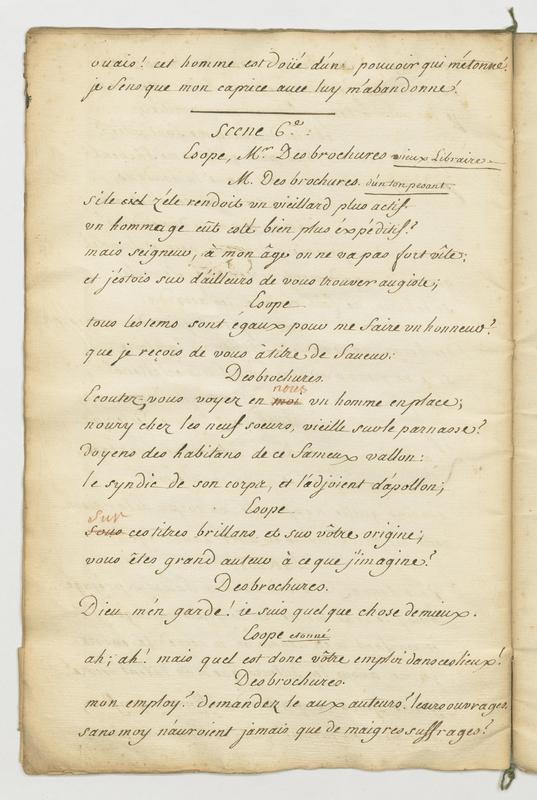 ouais! cet homme est doüé d'un pouvoir qui m'étonne!
je sens que mon caprice avec luy m'abandonne!
scene 6.e:
Esope, M.r Desbrochures vieux Libraire
M. Desbrochures. d'un ton pesant.
si le ciel zéle rendoit un vieillard plus actif
un hommage eût esté bien plus éxpéditif?
mais seigneur, à mon âge on ne va pas fort vîte;
et j'étois sur d'ailleurs de vous trouver au giste;
Esope
tous les tems sont égaux pour me faire un honneur?
que je reçois de vous à titre de faveur:
Desbrochures.
Ecoutez, vous voyez en moi nous un homme en place;
noury chez les neuf soeurs, vieilli sur le parnasse?
Doyens des habitans de ce fameux vallon:
le syndic de son corps, et l'adjoient d'apollon;
Esope
Sous Sur ces titres brillans, et sur vôtre origine;
vous êtes grand auteur à ce que j'imagine?
Desbrochures.
Dieu m'en garde! je suis quelque chose de mieux.
Esope etonné
ah; ah! mais quel est donc vôtre emploi dans ces lieux!
Desbrochures.
mon employ? demandez le aux auteurs? leurs ouvrages,
sans moy n'auroient jamais que de maigres suffrages?